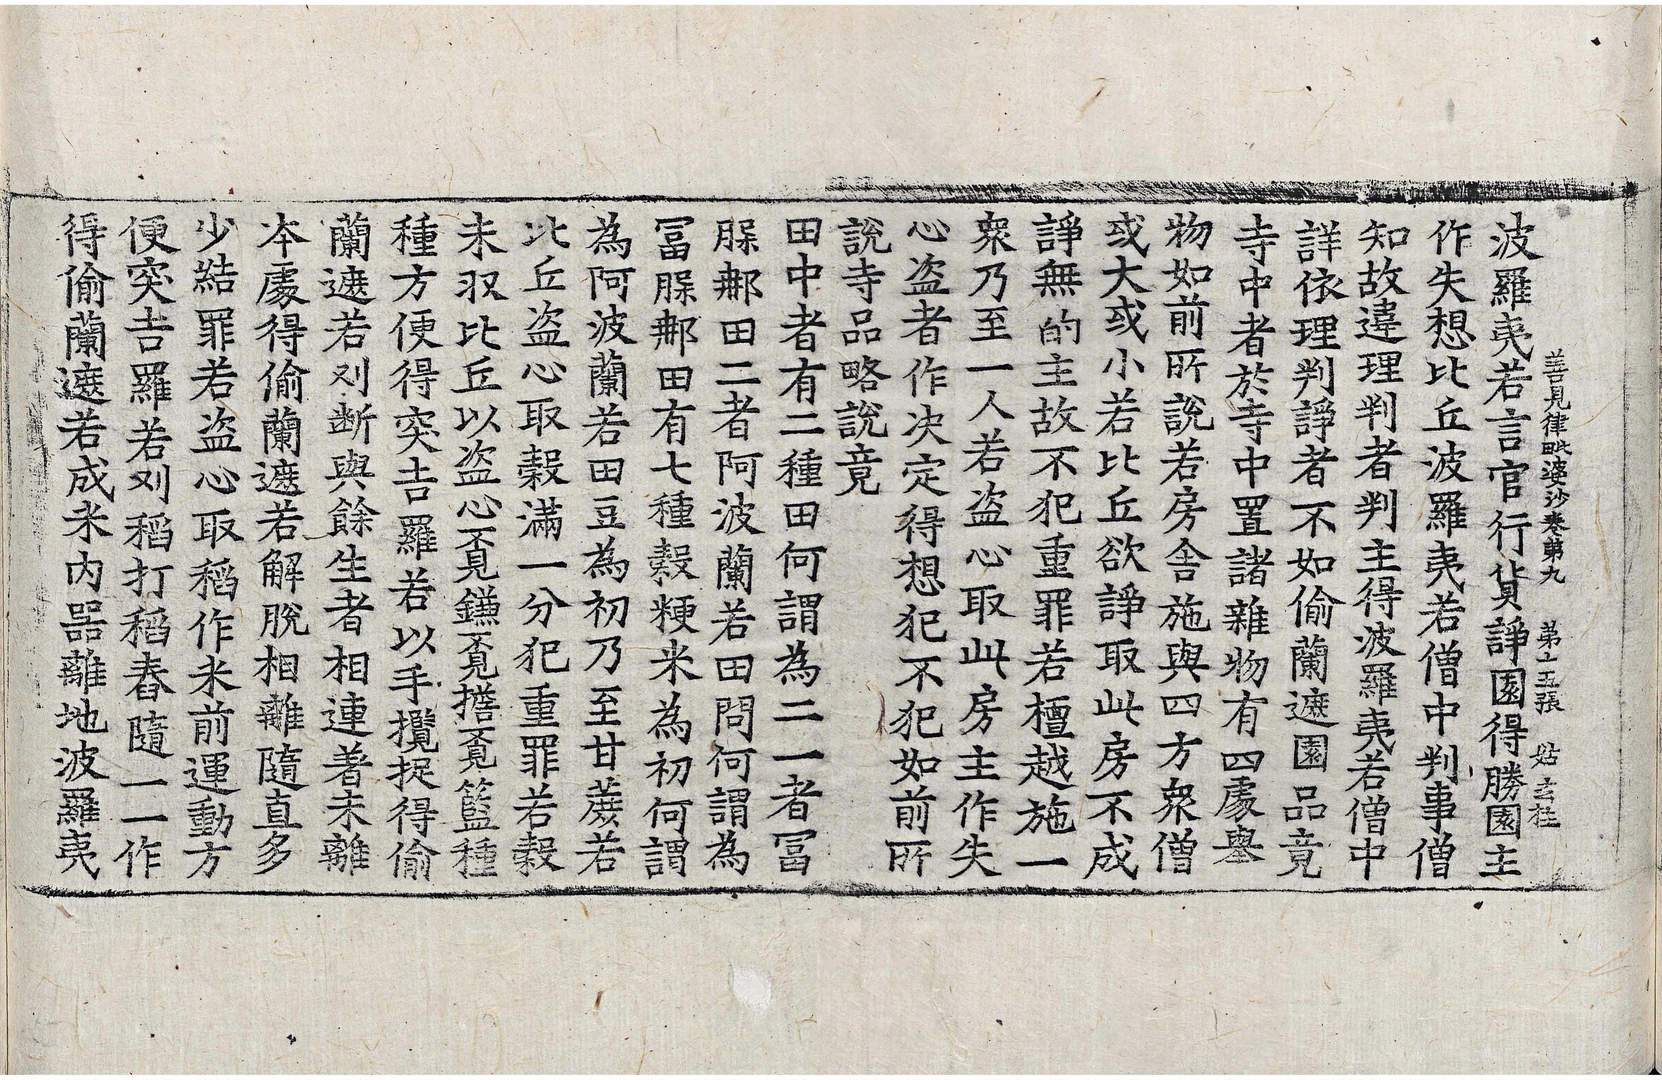 善見律毗婆沙卷第九 第十五張 姑
波羅夷若言官行貨諍園得勝園主
作失想比丘波羅夷若僧中判事僧
知故違理判者判主得波羅夷若僧中
詳依理判諍者不如偷蘭遮園品竟
寺中者於寺中置諸雜物有四處舉
物如前所說若房舍施與四方衆僧
或大或小若比丘欲諍取此房不成
諍無的主故不犯重罪若檀越施一
衆乃至一人若盜心取此房主作失
心盜者作决定得想犯不犯如前所
說寺品略說竟
田中者有二種田何謂為二一者冨
𦛨𨚗田二者阿波蘭若田問何謂為
冨𦛨𨚗田有七種糓粳米為初何謂
為阿波蘭若田豆為初乃至甘蔗若
比丘盜心取糓滿一分犯重罪若糓
未収比丘以盜心覔鎌覔擔覔籃種
種方便得突吉羅若以手攬捉得偷
蘭遮若刈断與餘生者相連著未離
夲處得偷蘭遮若解脫相離隨直多
少結罪若盜心取稻作米前運動方
便突吉羅若刈稻打稻舂隨一一作
得偷蘭遮若成米内器離地波羅夷